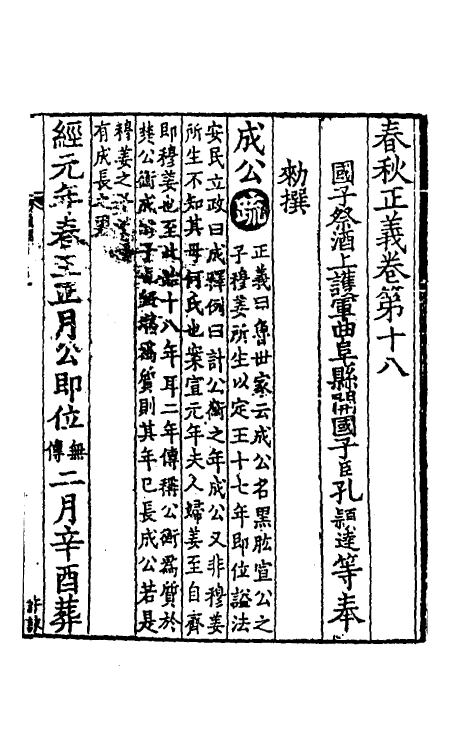 春秋正義卷第十八
國子祭酒上護軍曲阜縣開國子臣孔穎達等奉
勑撰
成公疏
正義曰魯世家云成公名黑肱宣公之
子穆姜所生以定王十七年即位謚法
安民立政曰成釋例曰計公衡之年成公又非穆姜
所生不知其母何氏也案宣元年夫人婦姜至自齊
即穆姜也至此始十八年耳二年傳稱公衡爲質於
楚公衡成公子也既堪爲質則其年已長成公若是
穆姜之
有成長之
經元年春王正月公即位
無
傳
二月辛酉葬